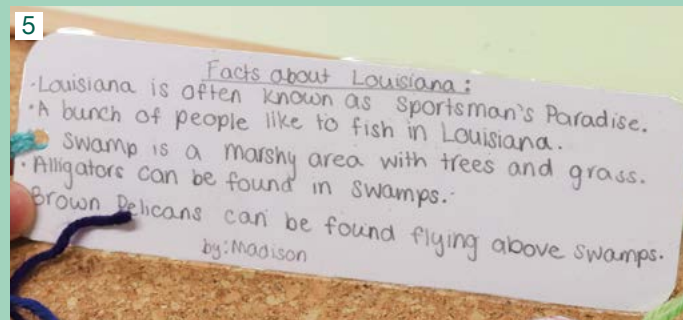 5
Facts about Louisiana:
·Louisiana is often known as Sportsman's Paradise.
·A bunch of people like to fish in Louisiana.
Swamp is a marshy area with trees and grass.
·Alligators can be found in swamps.
Brown Pelicans can be found flying above swamps.
by: Madison